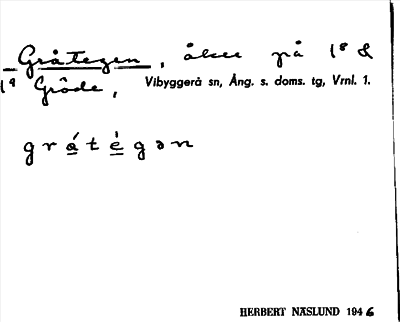 Gråtegen, åker på 1⁸ &
1⁹ Gröde, Vibyggerå sn, Ång. s. doms. tg, Vrnl. 1.
grátègən
HERBERT NÄSLUND 1946